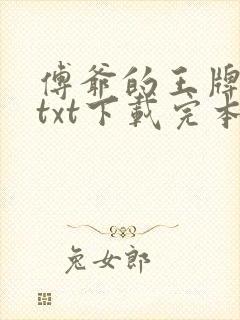 傅爷的王牌
txt下载完本
兔女郎